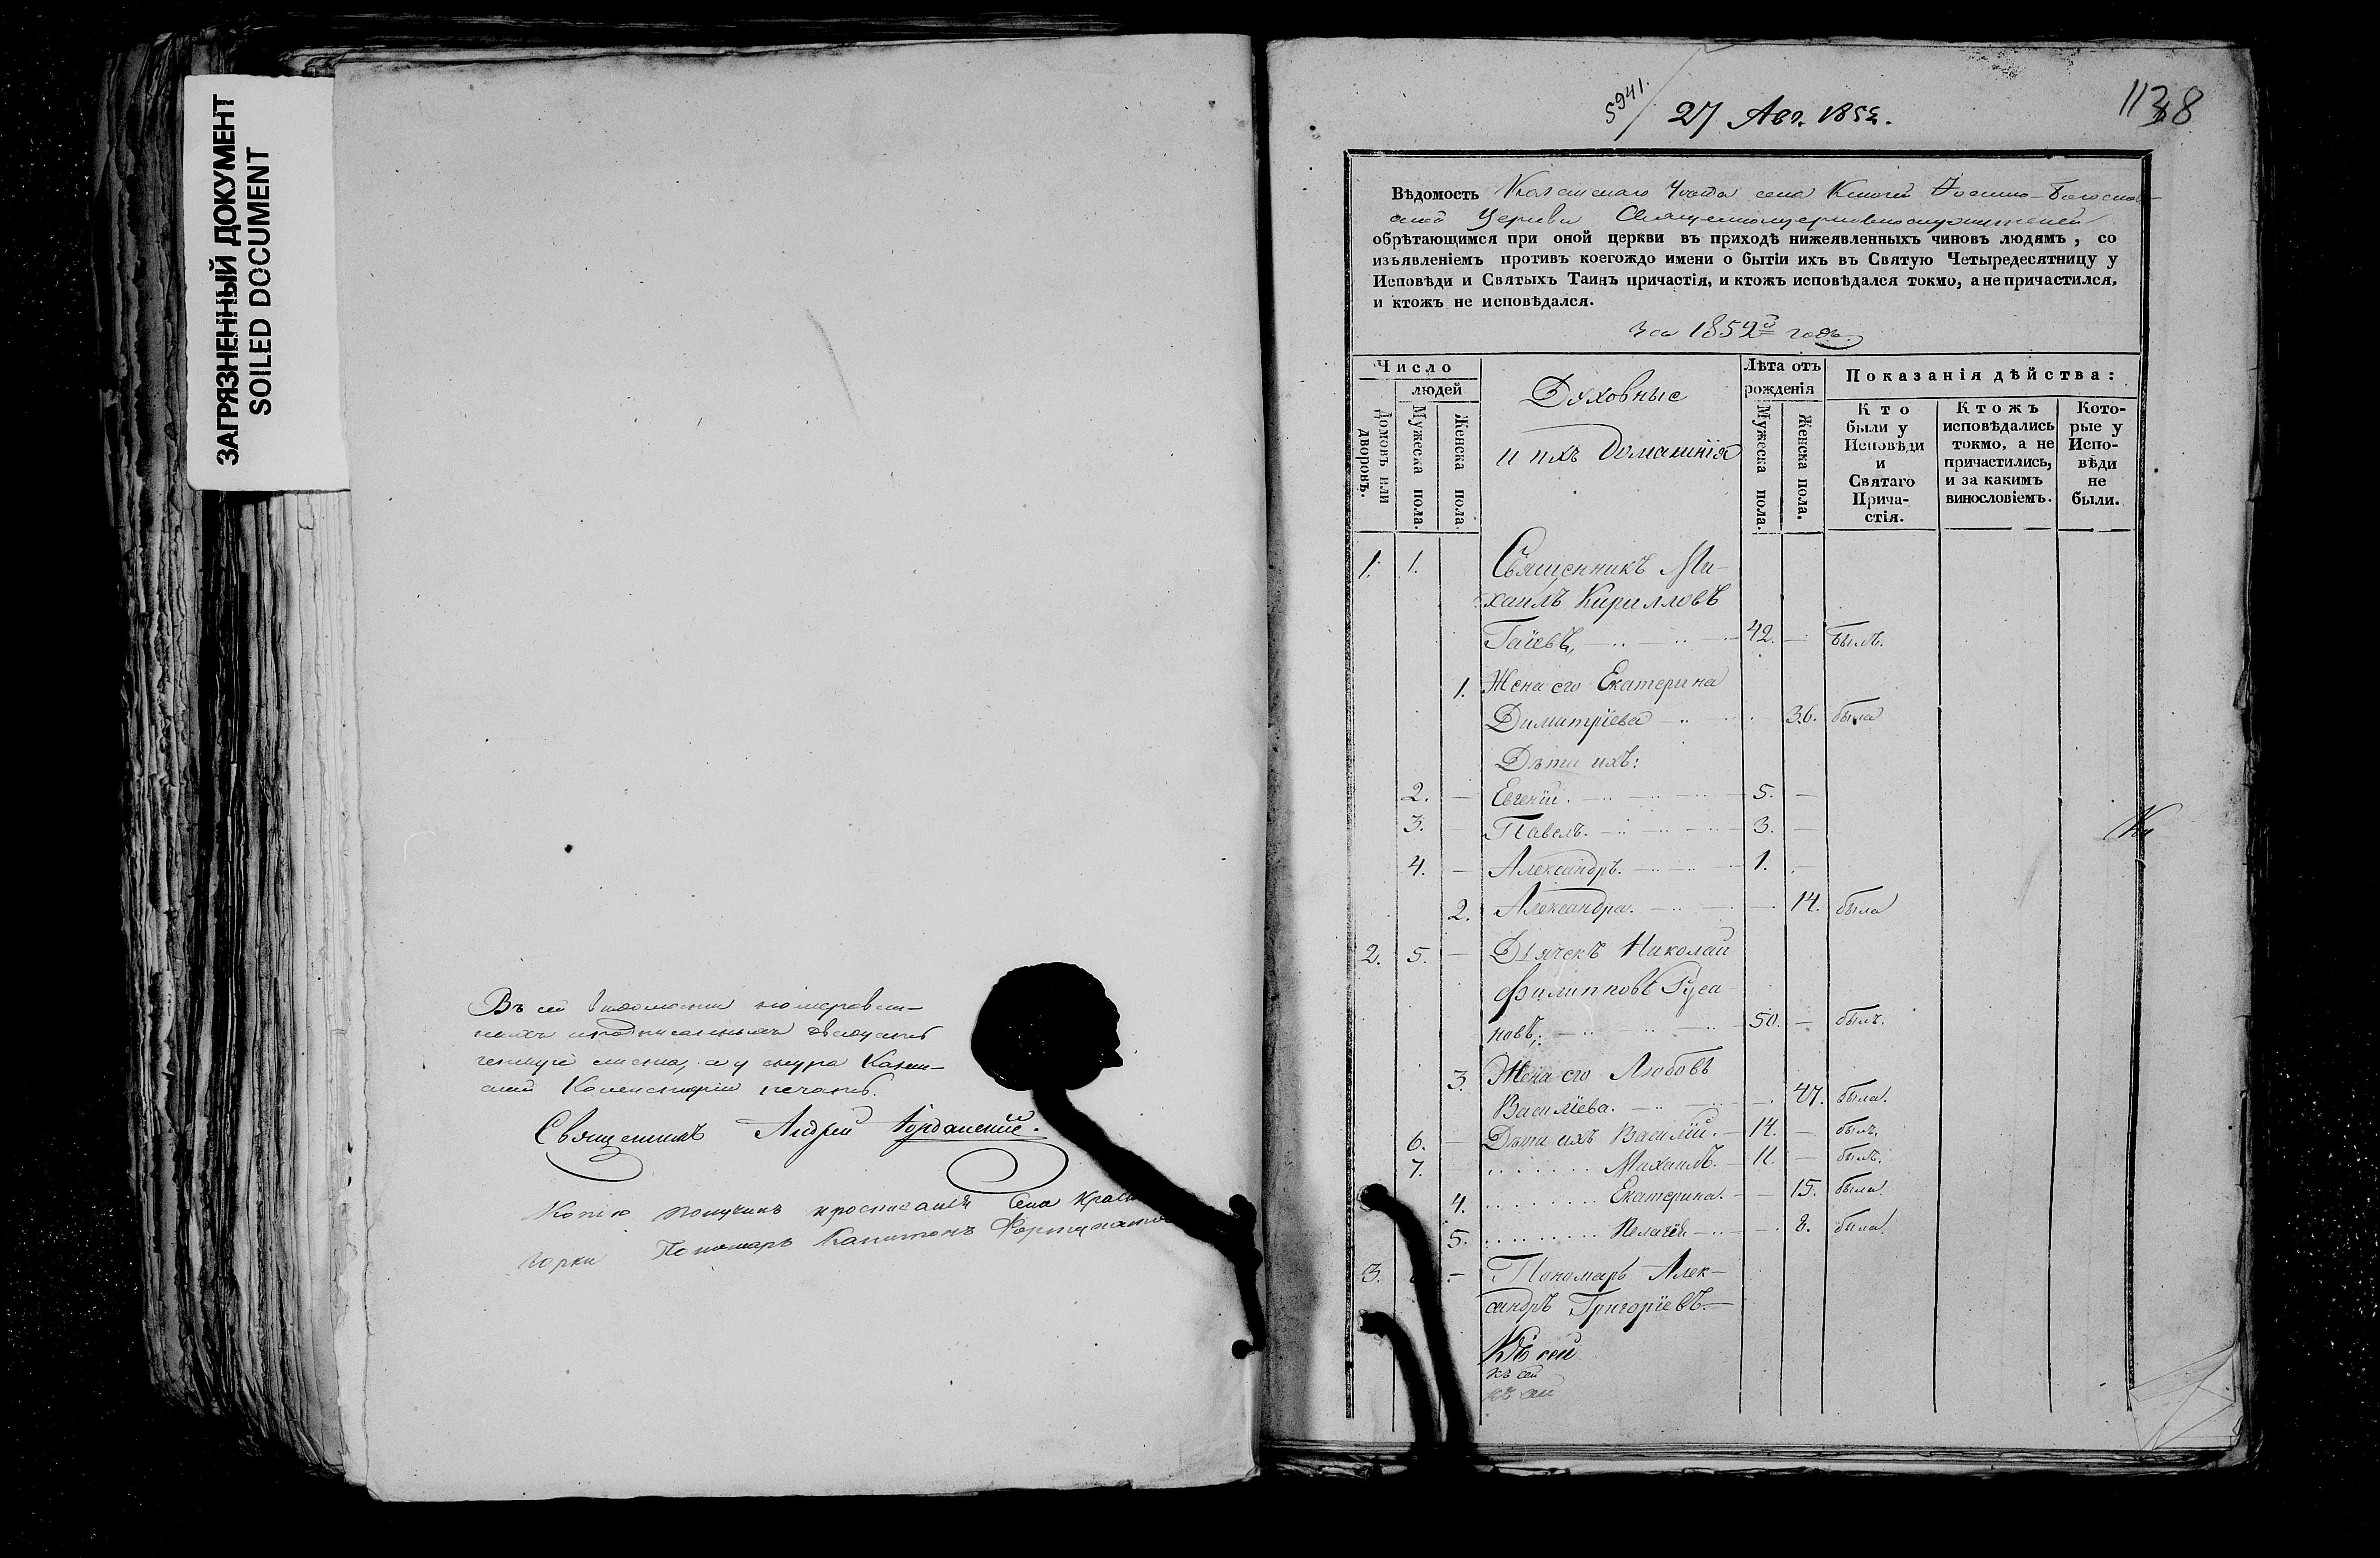 ЗАГРЯЗНЕННЫЙ ДОКУМЕНТ
SOILED DOCUMENT
Въ сей
листа, а у шнура Казан-
ской Консисторіи печать.
Священникъ Андрей
Копію получилъ Села
горки Пономарь Капитонъ
5941.
27 Авг. 1852.
1138
Вѣдомость уѣзда села Іоанно-Богослов-
ской Церкви Священноцерковнослужителей
обрѣтающимся при оной церкви въ приходѣ нижеявленныхъ чиновъ людямъ, со
изъявленіемъ противъ коегождо имени о бытіи ихъ въ Святую Четыредесятницу у
Исповѣди и Святыхъ Таинъ причастія, и ктожъ исповѣдался токмо, а не причастился,
и ктожъ не исповѣдался.
За 1852й годъ.
Число
людей
Домовъ или дворовъ.
Мужеска пола.
Женска пола.
Духовные
и ихъ домашнія
Лѣта отъ
рожденія
Мужеска пола.
Женска пола.
Показанія дѣйства:
Кто
были у
Исповѣди
и
Святаго
Прича-
стія.
Ктожъ
исповѣдались
токмо, а не
причастились,
и за какимъ
винословіемъ.
Кото-
рые у
Испо-
вѣди
не
были.
1. 1. Священникъ Ми-
хаилъ Кирилловъ
Гаіевъ, 42. — былъ.
1. Жена его Екатерина
Димитріева 36. была
Дѣти ихъ:
2. — Евгеній. 5. —
3. — Павелъ. 3. —
4. — Александръ. 1. —
2. Александра. — 14. была
2. 5. — Дьячекъ Николай
Филипповъ Руса
новъ, 50. — былъ.
3. Жена его Любовь
Василіева. — 47. была.
6. — Дѣти ихъ Василій. 14. — былъ.
7. Михаилъ. 11. — былъ.
4. Екатерина. — 15. была.
5. Пелагія — 8. была.
3. — Пономарь Алек-
сандръ Григоріевъ.—
Къ сей
къ сей
къ сей